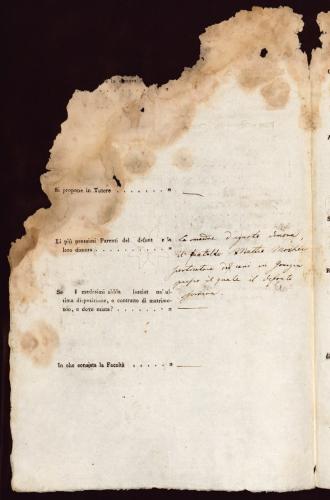 la dimora
Si propone in Tutore . . . . . . . "
Li più prossimi Parenti del defunt e la
loro dimora . . . . . . . . "
la madre d'ignota dimora
il fratello Matteo
in Gorizia
presso il quale il defonto
Se i medesimi abbia lasciat un'ul-
tima disposizione, o contratto di matrimo-
nio, e dove esista? . . . . . . "
In che consista la Facoltà . . . . . "